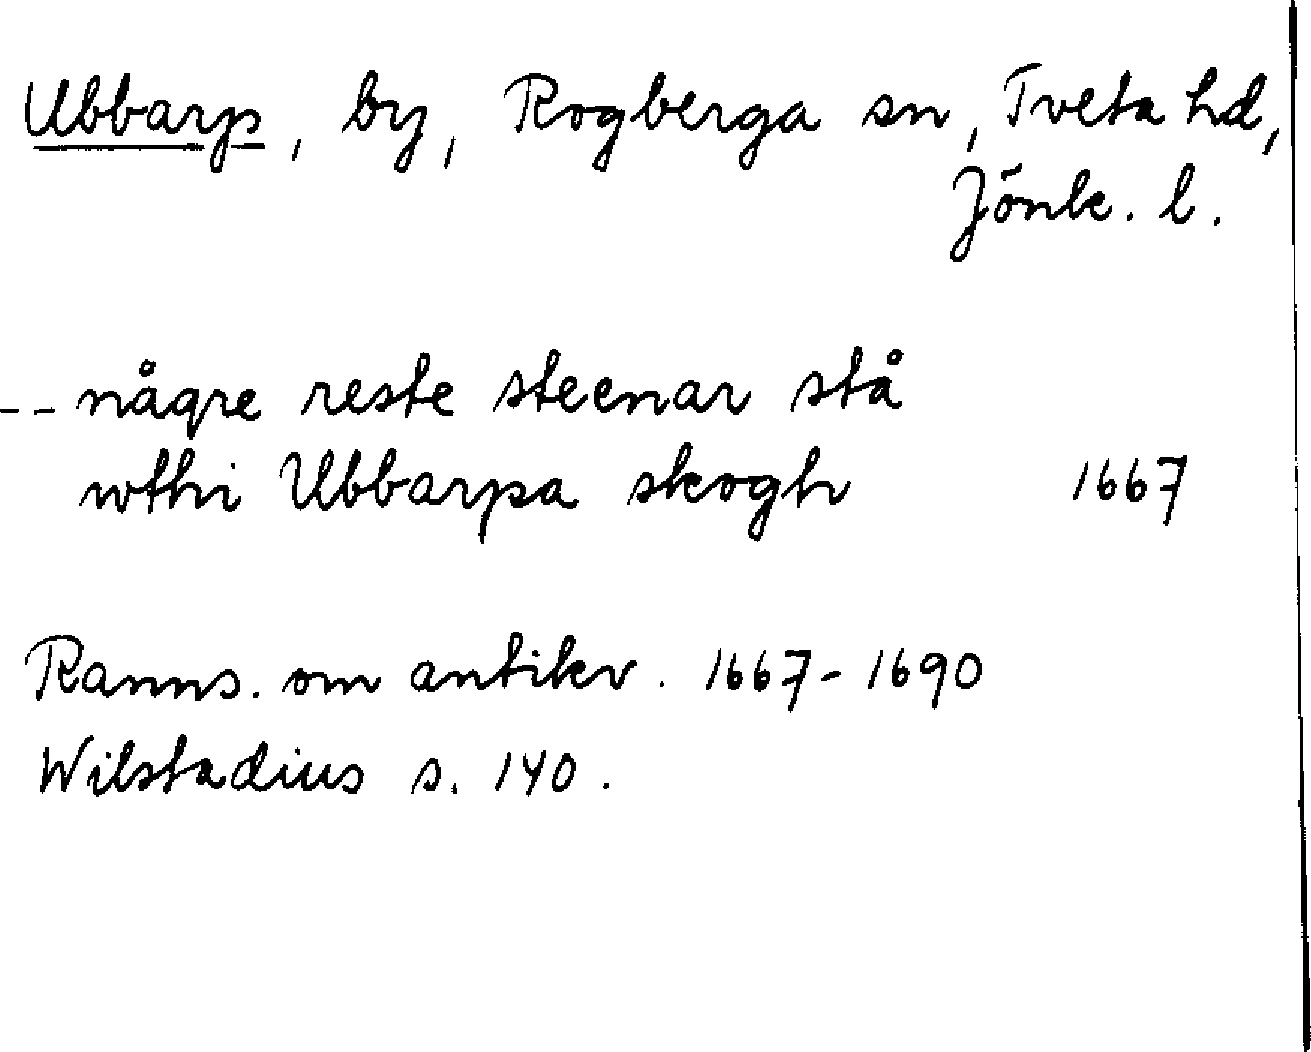 Ubbarp, by, Rogberga sn, Tveta hd,
Jönk. l.
-- någre reste steenar stå
wthi Ubbarpa skogh 1667
Ranns. om antikv. 1667-1690
Wilstadius s. 140.